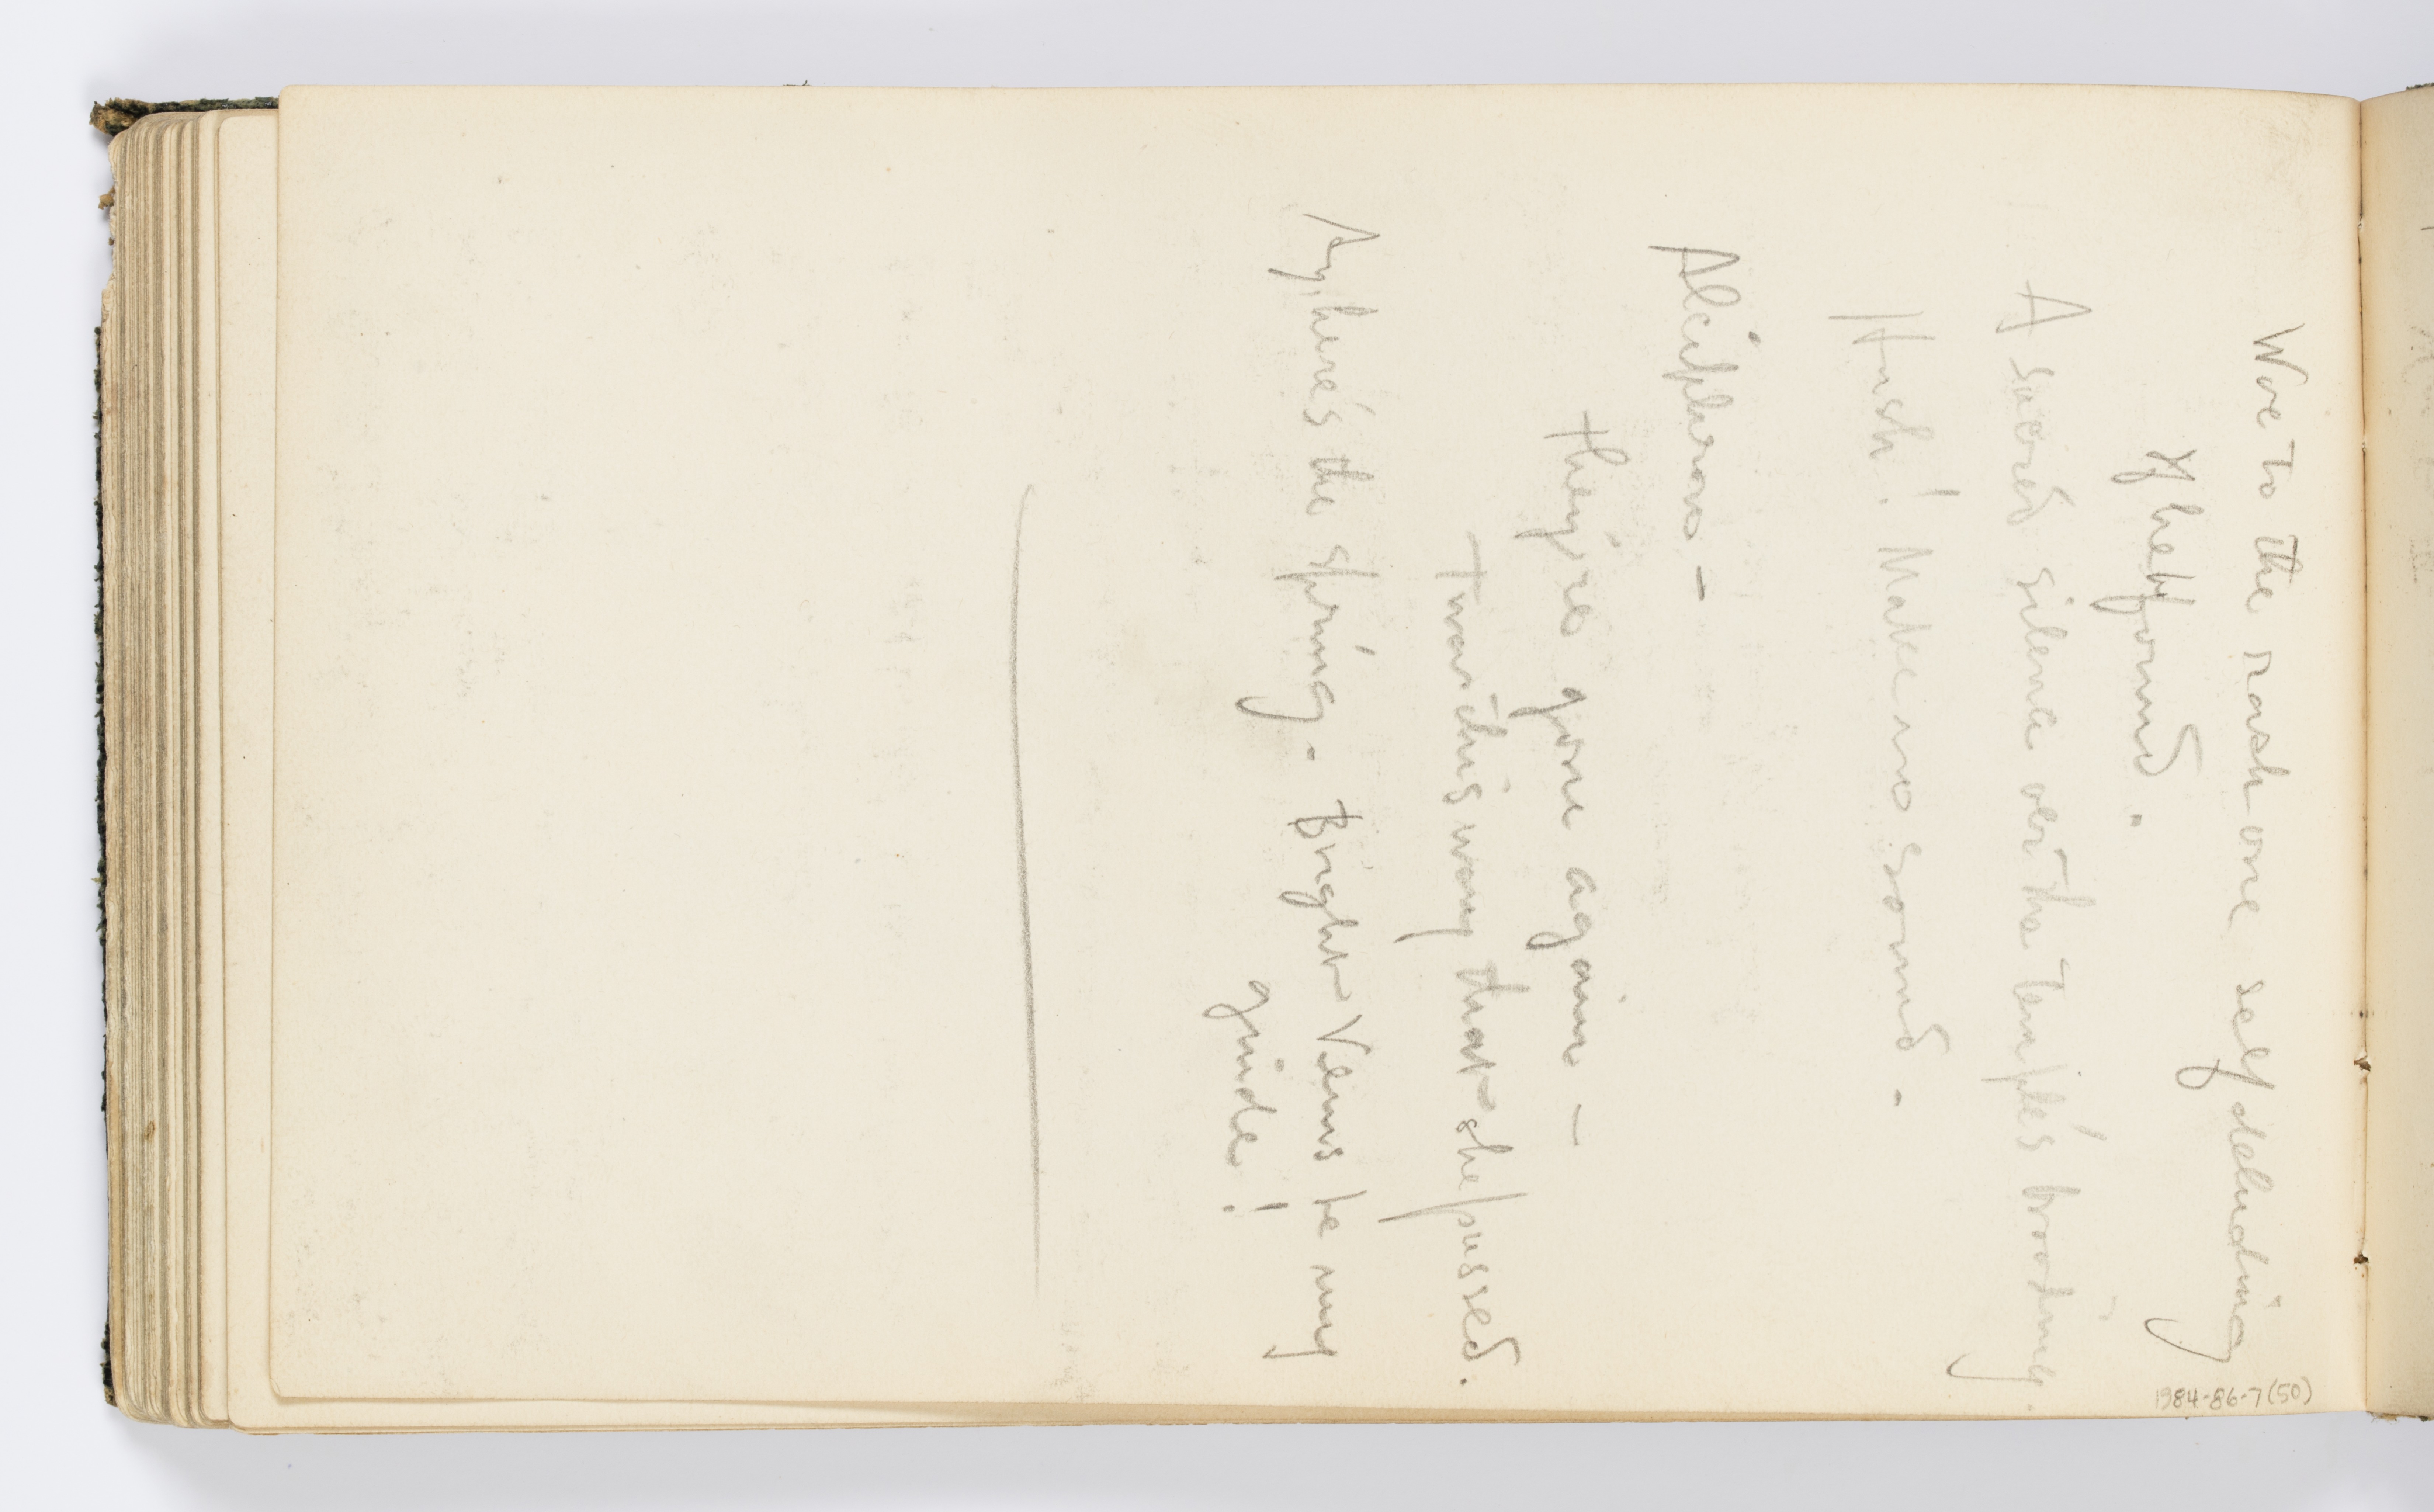 Woe to the rash one self deluding
If he be found.
A sacred silence o'er the temple's brooding.
Hush! Make no sound.
Alciphron –
they're gone again –
Twas this way that she passed.
Ay, here's the spring. Bright Venus be my
guide!
1984-86-7(50)